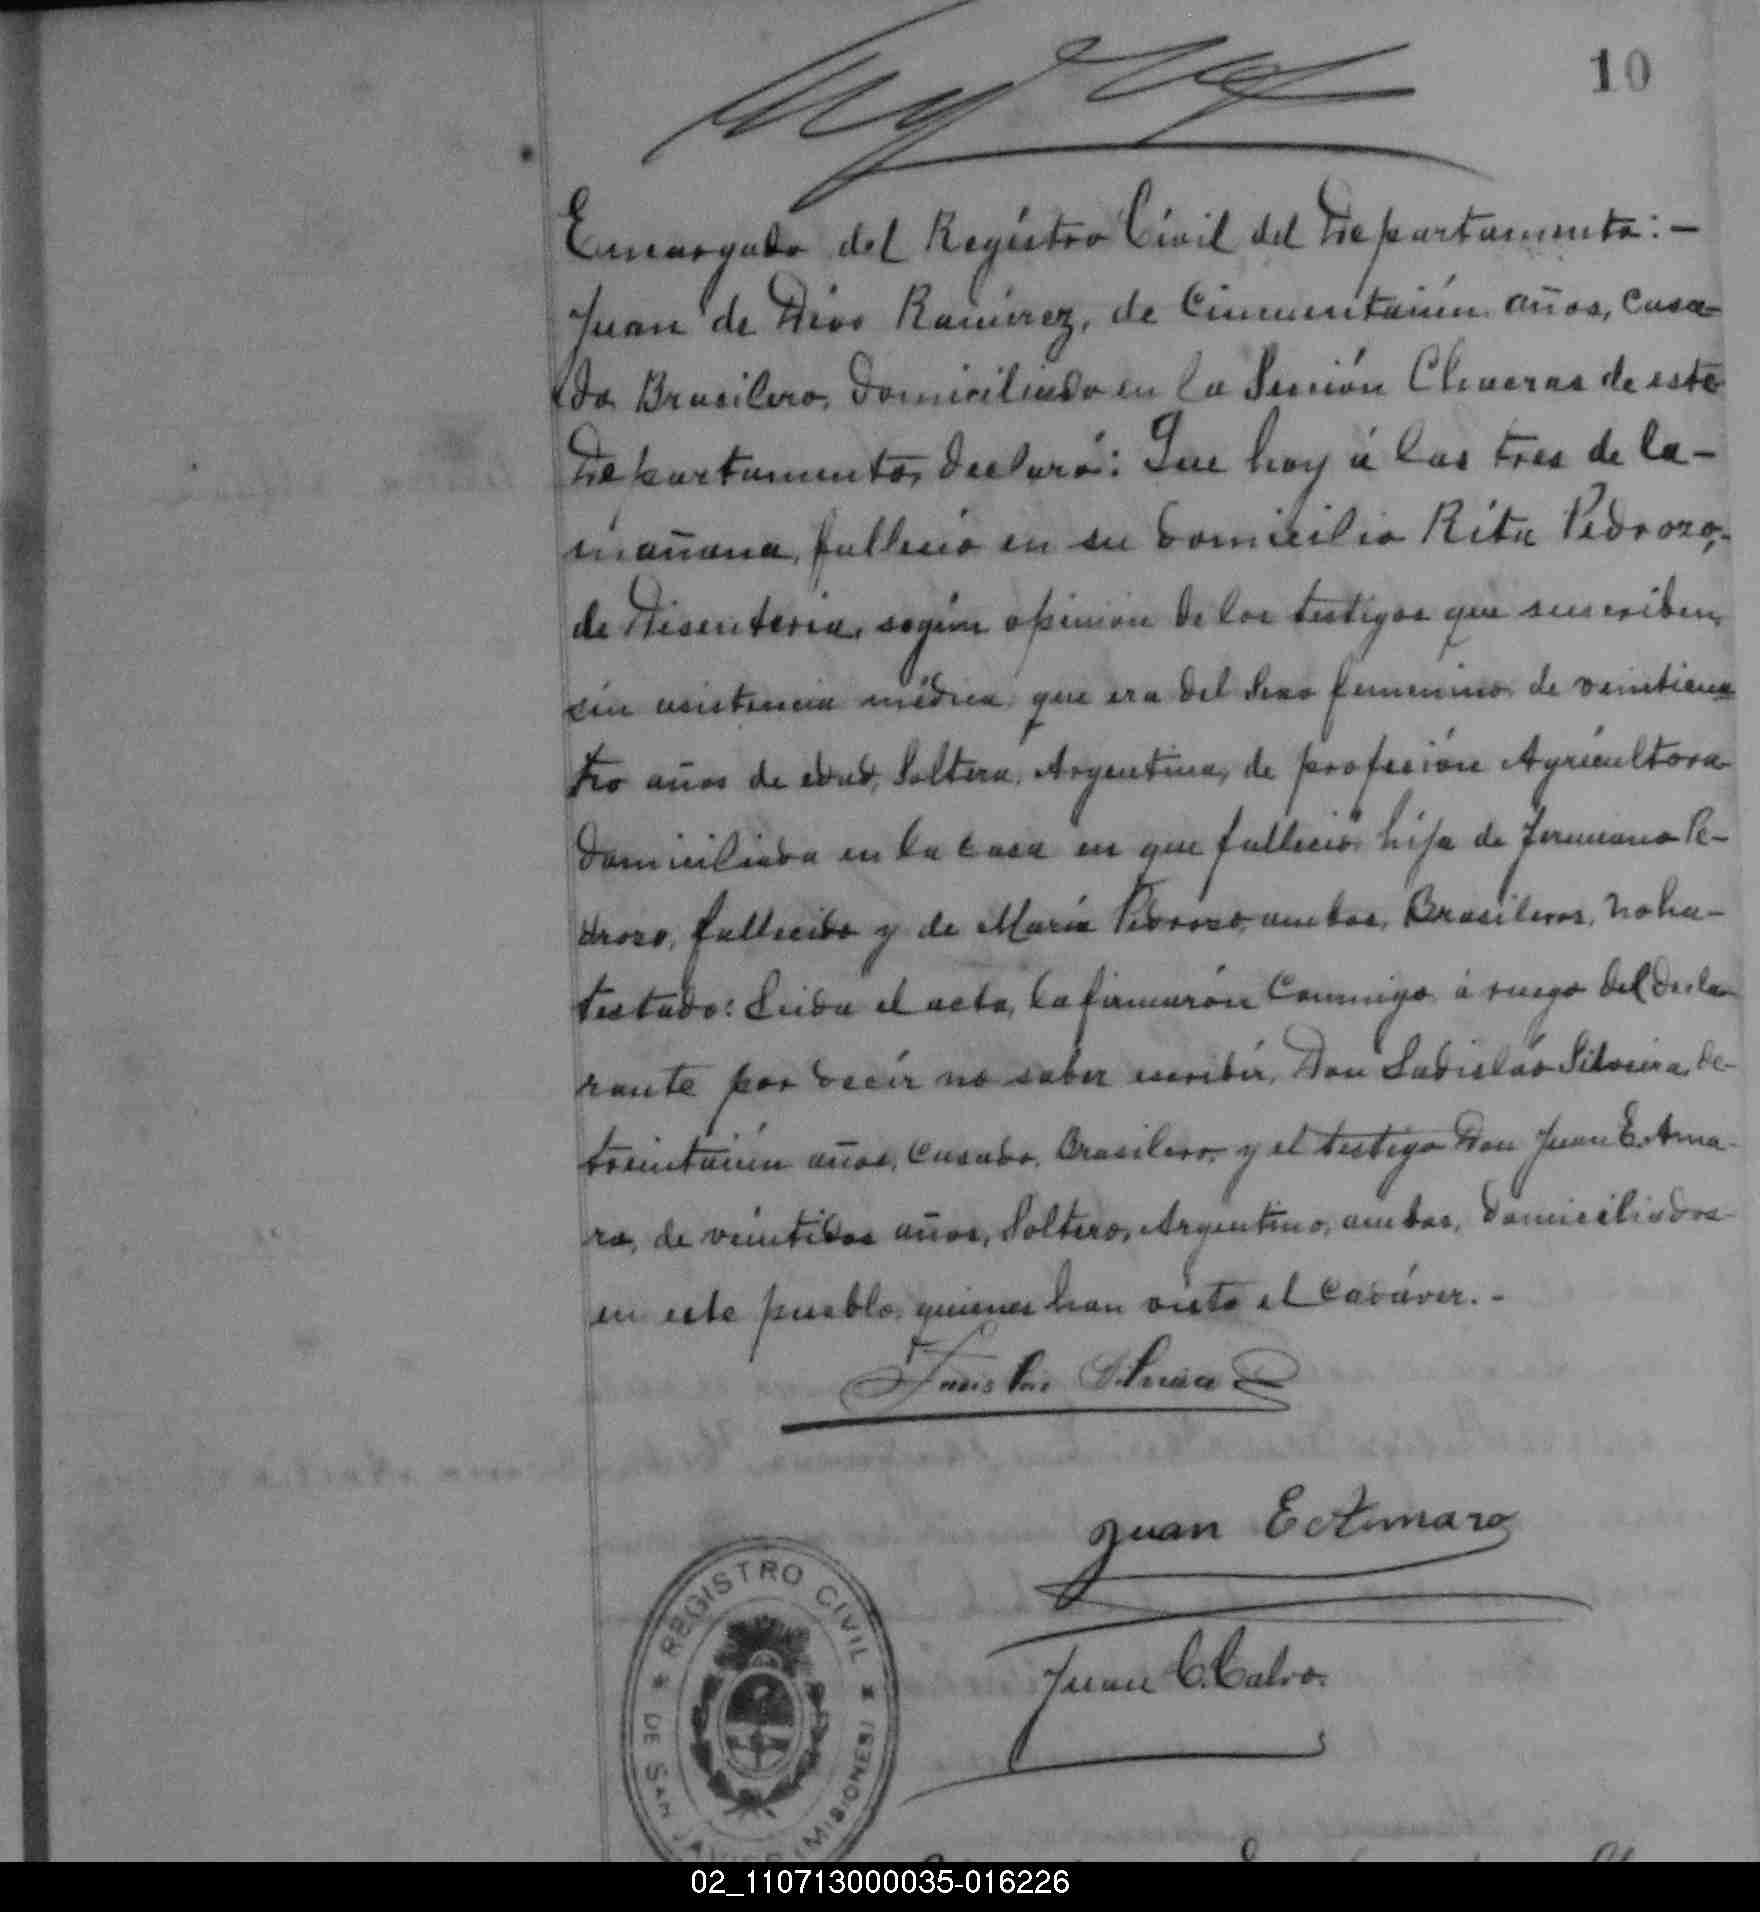 10
Encargado del Registro Civil del Departamento: —
Juan de Dios Ramirez, de Cincuentaiún años, casa-
do, Brasilero, domiciliado en la Sección Chacras de este
Departamento, declaró: Que hoy á las tres de la-
mañana, falleció en su domicilio Rita Pedrozo,-
de Disenteria, según opinión de los testigos que suscriben,
sin asistencia médica, que era del sexo femenino, de veinticua
tro años de edad, Soltera, Argentina, de profesión Agricultora
domiciliada en la casa en que falleció, hija de Pe-
drozo, fallecido y de María Pedrozo, ambos, Brasileros, no ha-
testado: Leida el acta, la firmarón Conmigo, á ruego del decla-
rante por decir no saber escribir, Don Ladislao Silveira, de-
treintaiún años, Casado, Brasilero, y el testigo Don Juan E. Ama-
ro, de veintidos años, Soltero, Argentino, ambos, domiciliados
en este pueblo, quienes han visto el Cadáver. -
Ladislao Silveira
Juan E Amaro
Juan C. Calvo.
REGISTRO CIVIL
DE SAN JAVIER (MISIONES)
02_110713000035-016226